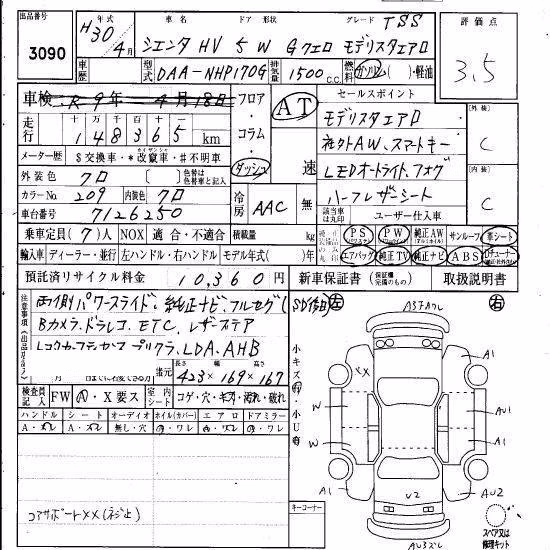 出品番号
3090
年式
H30年
4月
車名
シエンタ HV
ドア 形状
5 W
グレード
TSS
Gクエロ モデリスタエアロ
評価点
3.5
車歴
型式
DAA-NHP170G
排気量
1500 c.c.
燃料
ガソリン( )・軽油
車検 R 9年 4月 18日
フロア・コラム・ダッシュ
AT
速
セールスポイント
モデリスタエアロ
社外AW、スマートキー
LEDオートライト、フォグ
ハーフレザーシート
外装
C
内装
C
走行
十 万 千 百 十 一
148365 km
メーター歴
$交換車・*改竄車・#不明車
外装色
クロ
( )
色替は色替車と記入
カラーNo.
209
内装色
クロ
冷房
AAC
無
車台番号
7126250
該当車は丸印
ユーザー仕入車
乗車定員 (7)人
NOX 適合・不適合
積載量
kg
PS
PW
純正AW
サンルーフ
革シート
輸入車 ディーラー・並行
左ハンドル・右ハンドル
モデル年式( )年
エアバッグ
純正TV
純正ナビ
ABS
Dチューナー
預託済リサイクル料金
10,360円
新車保証書
取扱説明書
注意事項
両側パワースライド、純正ナビ、フルセグ(SD欠品)
Bカメラ、ドラレコ、ETC、レザーステア
プリクラ、LDA、AHB
諸元
長さ 幅 高さ
423×169×167
検査員記入
FW
A・X要ス
室内シート
コゲ・穴・キズ・汚れ・破れ
ハンドル シート オーディオ ホイル(カバー) エアロ ドアミラー
A・スレ
A・スレ
無し・穴
ワレ
スレ
ワレ
コアサポートXX(ネジ止)
小キズ
小U
左
右
A3
A1
XX
W
AU1
W
A1
A1
U2
AU2
キーコーナー
スペア又は修理キット